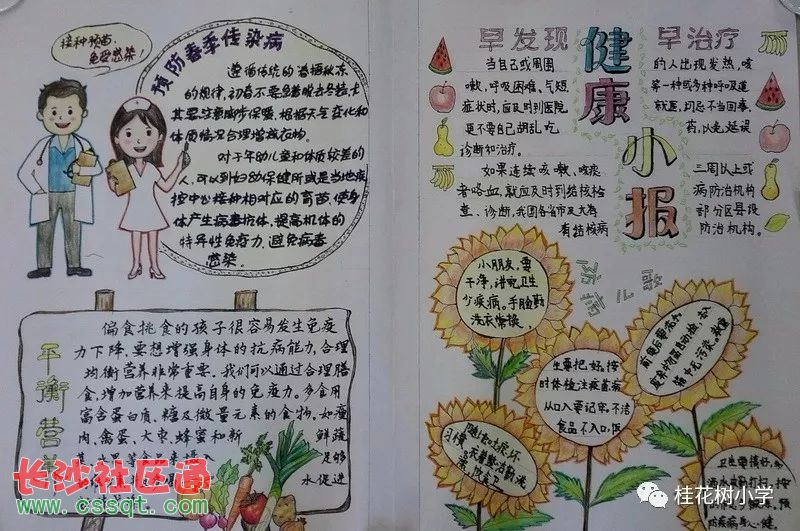 接种预苗，
免受感染！
预防春季传染病
遵循传统的春捂秋冻
的规律，初春不要急着脱去冬装，尤
其要注意脚步保暖，根据天气变化和
体质情况合理增减衣物。
对于年幼儿童和体质较差的
人，可以到妇幼保健所或是当地疾
控中心接种相对应的育苗，使身
体产生病毒抗体，提高机体的
特异性免疫力，避免病毒
感染。
平衡营养
偏食挑食的孩子很容易发生免疫
力下降，要想增强身体的抗病能力，合理
均衡营养非常重要。我们可以通过合理膳
食，增加营养来提高自身的免疫力。多食用
富含蛋白质、糖及微量元素的食物，如瘦
肉、禽蛋、大枣、蜂蜜和新 鲜蔬
足够
水促进
早发现 早治疗
健康小报
当自己或周围 的人出现发热，咳
嗽，呼吸困难、气短 等一种或多种呼吸道
症状时，应及时到医院 就医，切忌不当回事，
更不要自己胡乱吃 药，以免延误
诊断和治疗。
如果连续咳嗽、咳痰 三周以上或
者咯血，就应及时到结核检 病防治机构
查、诊断，我国各省市及大有 部分区县设
有结核病 防治机构。
防病儿歌
小朋友，要
干净，讲究卫生
少疾病，手脸勤
洗衣常换，
生要把好，按
时体检注疫苗病
从口入要记牢，不洁
食品不入口，饭
长沙社区通
www.cssqt.com
桂花树小学